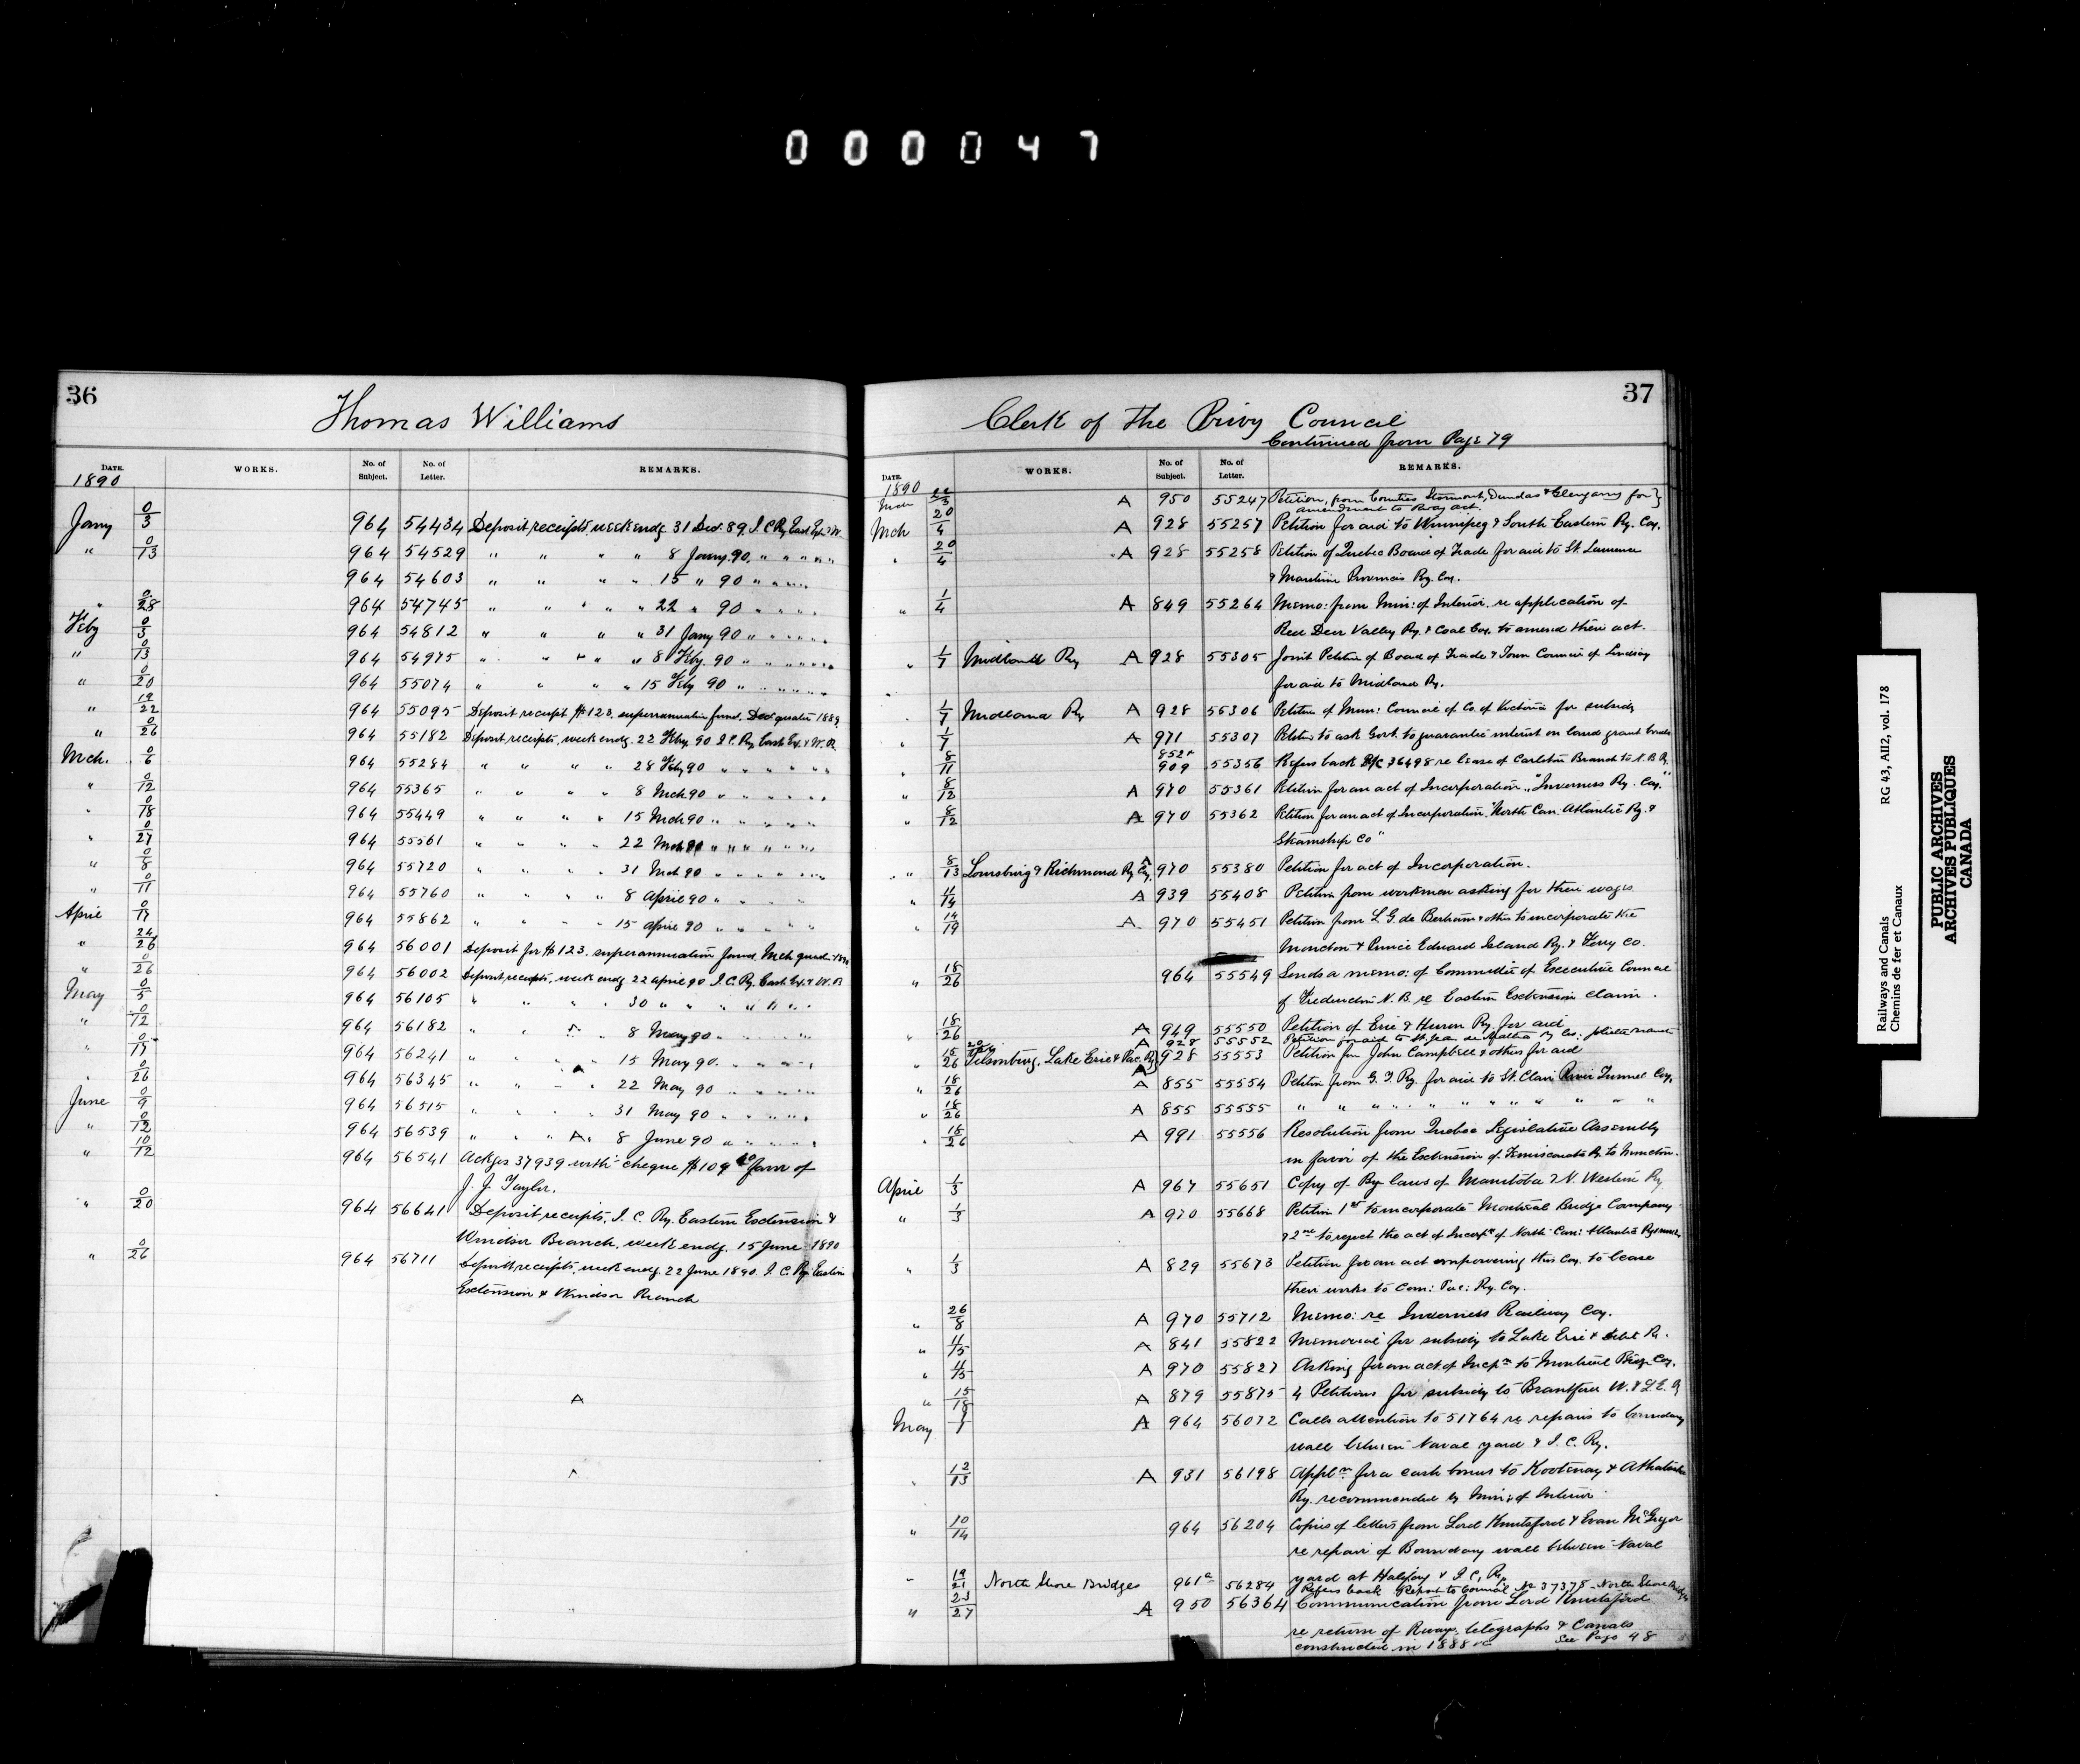 000047
36
Thomas Williams
DATE. WORKS. No. of Subject. No. of Letter. REMARKS.
1890
Jany 0/3 964 54434 Deposit receipts, week endg. 31 Dec. 89, I. C Ry East Ext. & W.
" 0/13 964 54529 " " " " 8 Jany. 90, " " " " "
964 54603 " " " " 15 " 90 " " " "
" 0/28 964 54745 " " " " 22 " 90 " " " "
Feby 0/3 964 54812 " " " " 31 Jany 90 " " " " "
" 0/13 964 54975 " " " " 8 Feby. 90 " " " " "
" 0/20 964 55074 " " " " 15 Feby 90 " " " " "
" 19/22 964 55095 Deposit receipt $123. superannuation fund. Dec. quater 1889
" 0/26 964 55182 Deposit receipts, week endg. 22 Feby 90 I. C. Ry. East Ex. & W. B.
Mch. 0/6 964 55284 " " " " 28 Feby 90 " " " " "
" 0/12 964 55365 " " " " 8 Mch 90 " " " " "
" 0/18 964 55449 " " " " 15 Mch 90 " " " " "
" 0/27 964 55561 " " " " 22 Mch 90 " " " " "
" 0/8 964 55720 " " " " 31 Mch 90 " " " " "
" 0/11 964 55760 " " " " 8 April 90 " " " "
April 0/17 964 55862 " " " " 15 April 90 " " " "
" 24/26 964 56001 Deposit for $123. superannuation fund. Mch quar. 1890
" 0/26 964 56002 Deposit receipts, week endg 22 april 90 I. C. Ry. East. Ex. & W. B
May 0/5 964 56105 " " " " 30 " " " " " "
" 0/12 964 56182 " " " " 8 May 90 " " " "
" 0/17 964 56241 " " " " 15 May 90. " " " "
" 0/26 964 56345 " " " " 22 May 90 " " " "
June 0/9 964 56515 " " " " 31 May 90 " " " "
" 0/12 964 56539 " " " A " 8 June 90 " " " "
" 10/12 964 56541 Ackgs 37939 with cheque $109 favor of
J. J. Taylor.
" 0/20 964 56641 Deposit receipts, I. C. Ry. Eastern Extension &
Windsor Branch, week endg. 15 June 1890
" 0/26 964 56711 Deposit receipts, week endg. 22 June 1890. I. C. Ry. Eastern
Extension & Windsor Branch
A
37
Clerk of the Privy Council
Continued from Page 79
DATE. WORKS. No. of Subject. No. of Letter. REMARKS.
1890
Mch 22/3 A 950 55247 Petition, from Counties Stormont, Dundas & Glengarry for }
amendment to Rway act.
Mch 20/4 A 928 55257 Petition for aid to Winnipeg & South Eastern Ry. Coy.
" 20/4 A 928 55258 Petition of Quebec Board of Trade for aid to St. Laurence
& Maritime Provinces Ry. Coy.
" 1/4 A 849 55264 Memo: from Min: of Interior. re application of
Red Deer Valley Ry. & Coal Coy. to amend their act.
" 1/7 Midland Ry A 928 55305 Joint Petition of Board of Trade & Town Council of Lindsay
for aid to Midland Ry.
" 1/7 Midland Ry A 928 55306 Petition of Mun: Council of Co. of Victoria for subsidy
" 1/7 A 971 55307 Petition to ask Govt. to guarantee interest on land grant bonds
852 &
" 8/11 909 55356 Refers back R/C 36498 re lease of Carleton Branch to N. B R.
" 8/12 A 970 55361 Petition for an act of Incorporation "Inverness Ry. Coy."
" 8/12 A 970 55362 Petition for an act of Incorporation "North Can. Atlantic Ry. &
Steamship Co"
" 8/13 Louisburg & Richmond Ry Coy. A 970 55380 Petition for act of Incorporation.
" 4/14 A 939 55408 Petition from workmen asking for their wages
" 14/19 A 970 55451 Petition from L. G. de Bertram & others to incorporate the
Moncton & Prince Edward Island Ry. & Ferry Co.
" 18/26 964 55549 Sends a memo: of Committee of Executive Council
of Fredericton N. B. re Eastern Extension claim.
" 18/26 A 949 55550 Petition of Erie & Huron Ry. for aid
A 928 55552 Petition for aid to St. Jean de Matha Ry Co:
" 15/26 Tilsonburg, Lake Erie & Pac. Ry A 928 55553 Petition fm John Campbell & others for aid
" 18/26 A 855 55554 Petition from G. T. Ry. for aid to St. Clair River Tunnel Coy.
" 18/26 A 855 55555 " " " " " " " " " " " "
" 18/26 A 991 55556 Resolution from Quebec Legislative Assembly
in favor of the Extension of Temiscouata Ry to Moncton.
April 1/3 A 967 55651 Copy of By-laws of Manitoba & N. Western Ry
" 1/3 A 970 55668 Petition 1st to incorporate Montreal Bridge Company
& 2nd to reject the act of Incorpn of North Can: Atlantic Ry
" 1/3 A 829 55673 Petition for an act empowering this Coy. to lease
their works to Can: Pac: Ry. Coy.
" 26/8 A 970 55712 Memo: re Inverness Railway Coy.
" 4/15 A 841 55822 Memorial for subsidy to Lake Erie & Detr. R.
" 4/15 A 970 55827 Asking for an act of Incpn to Montreal Bridge Coy.
" 15/18 A 879 55875 4 Petitions for subsidy to Brantford W. & L. E. Ry
May 1/7 A 964 56072 Calls attention to 51764 re repairs to boundary
wall between Naval yard & I. C. Ry.
" 12/13 A 931 56198 Appln for a cash bonus to Kootenay & Athabaska
Ry. recommended by Min: of Interior
" 10/14 964 56204 Copies of letters from Lord Knutsford & Evan McGregor
re repair of Boundary wall between Naval
yard at Halifax & I. C. Ry.
" 19/21 North Shore Bridges 961a 56284 Refers back Report to Council No 37378 - North Shore Bridges
" 23/27 A 950 56364 Communication from Lord Knutsford
re return of Rways, telegraphs & Canals
constructed in 1888 See Page 48
Railways and Canals RG 43, AII2, vol. 178
Chemins de fer et Canaux
PUBLIC ARCHIVES
ARCHIVES PUBLIQUES
CANADA